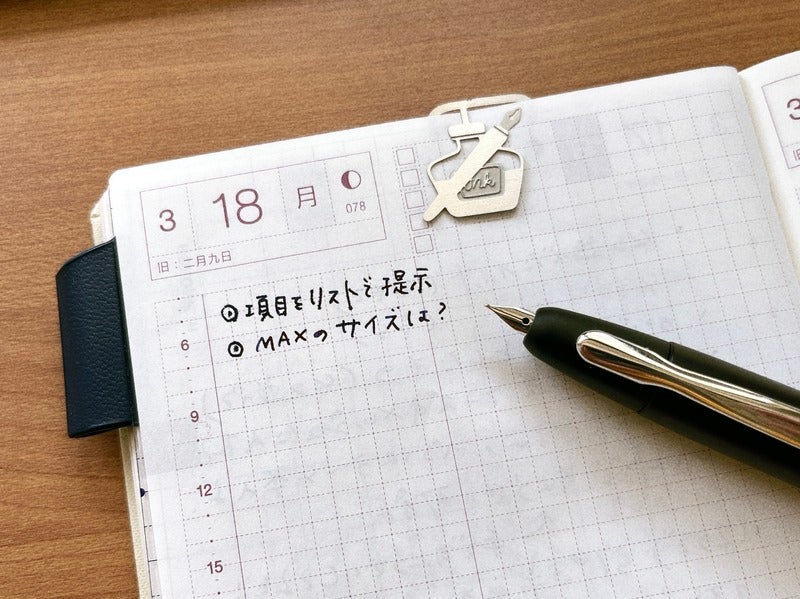 3 18 月
078
旧：二月九日
◎項目をリストで提示
◎MAXのサイズは？
6
9
12
15
Ink
3
旧